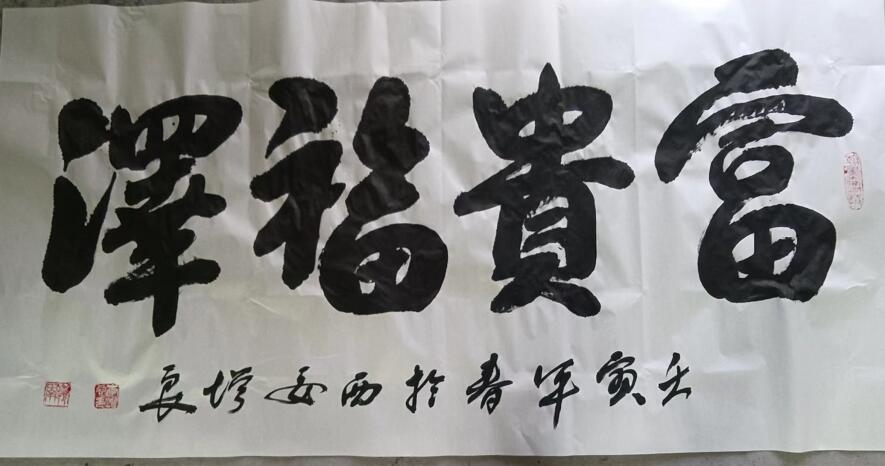 富貴福澤
壬寅年春於西安增良